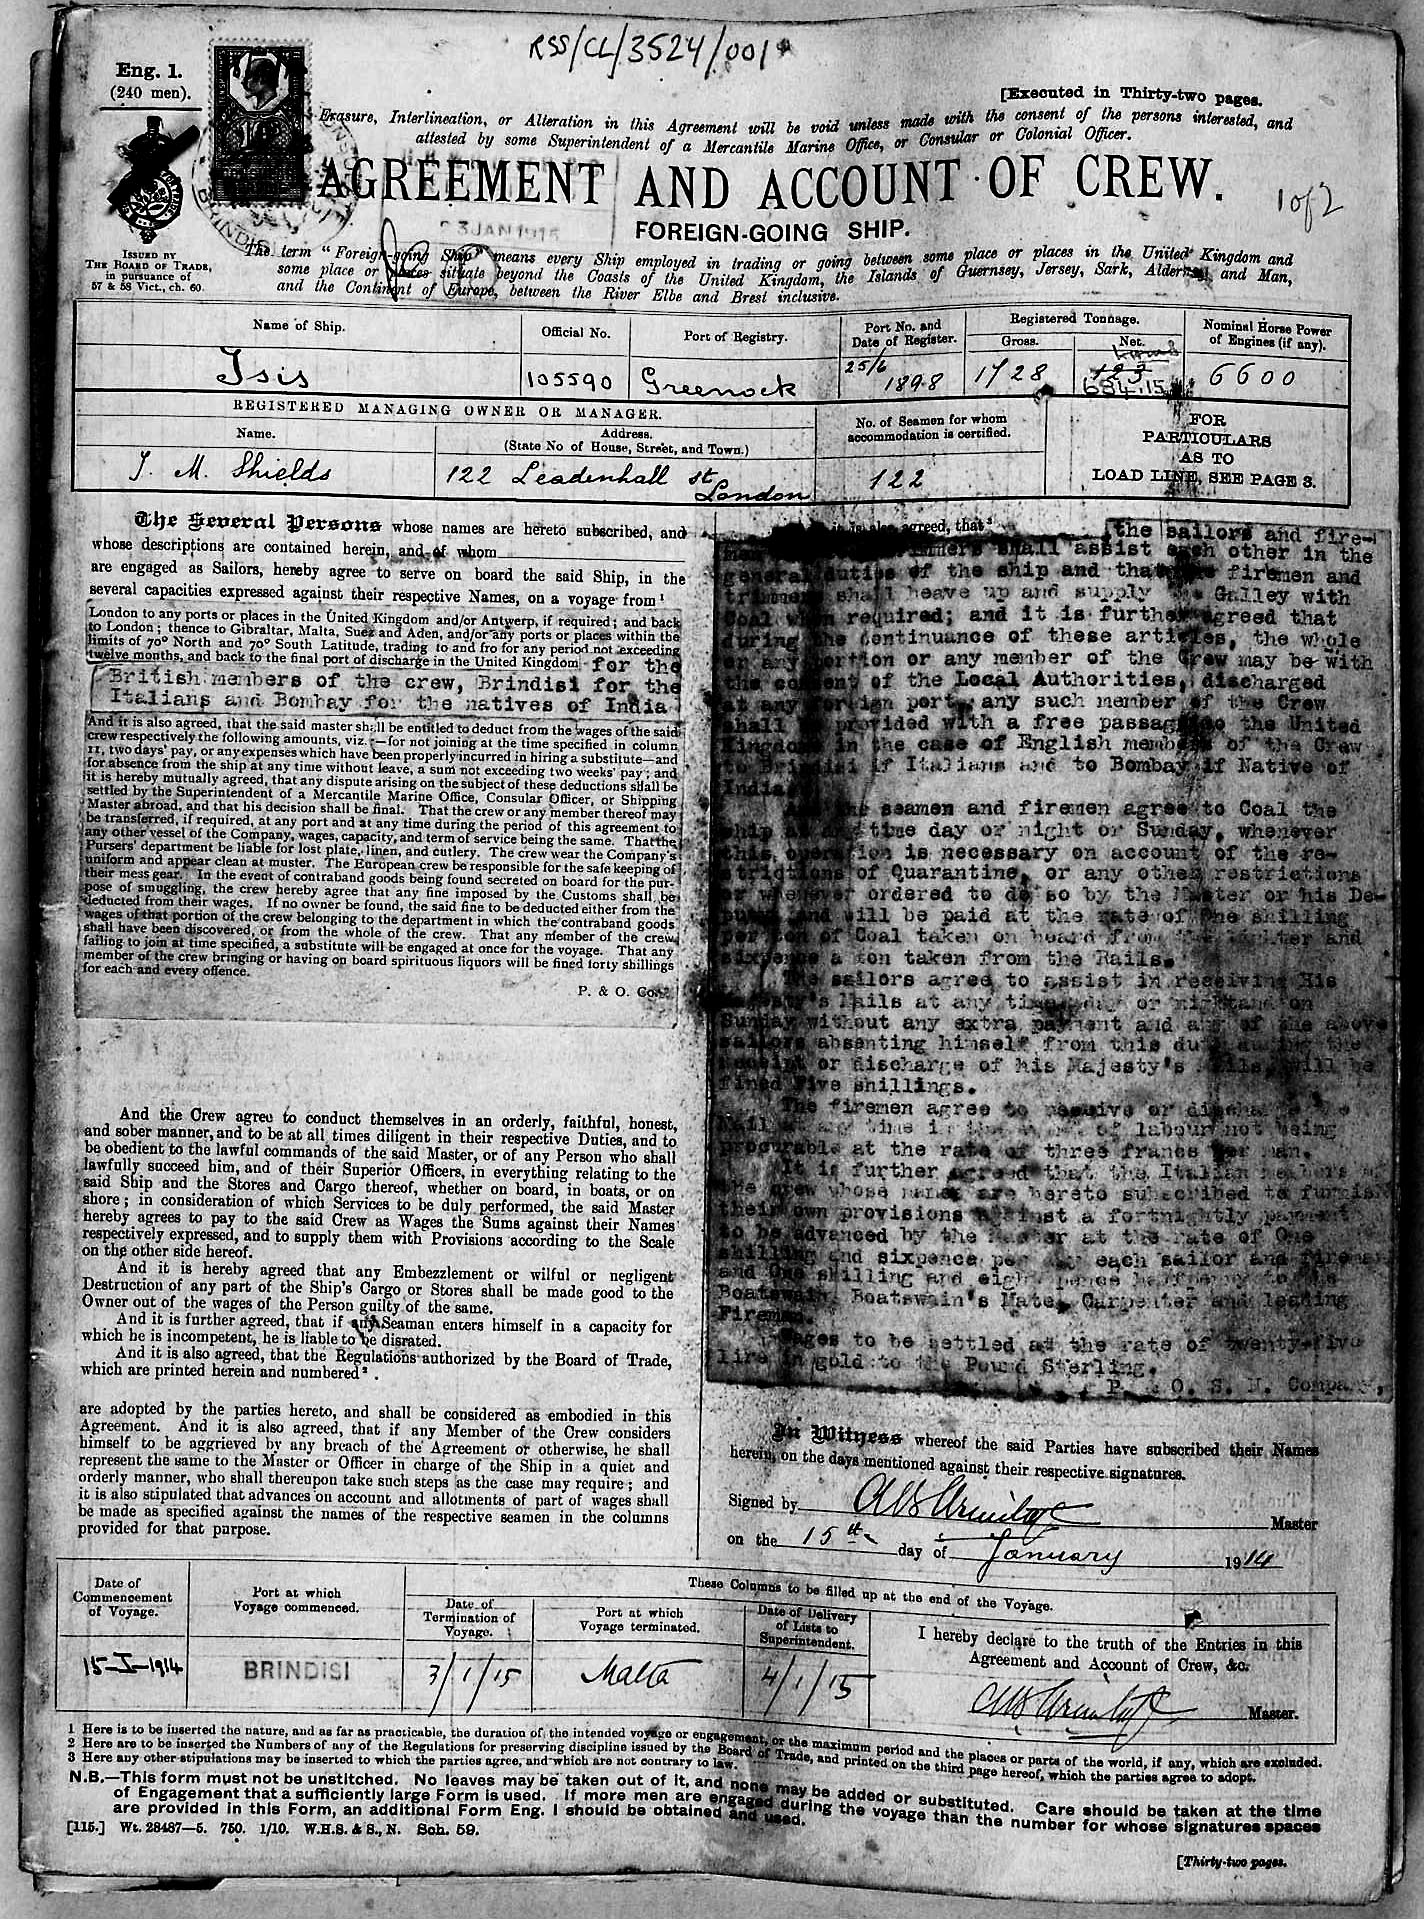 RSS/CL/3524/001
Eng. 1.
(240 men).
[Executed in Thirty-two pages.
Erasure, Interlineation, or Alteration in this Agreement will be void unless made with the consent of the persons interested, and
attested by some Superintendent of a Mercantile Marine Office, or Consular or Colonial Officer.
AGREEMENT AND ACCOUNT OF CREW.
1 of 2
3 JAN 1915
FOREIGN-GOING SHIP.
ISSUED BY
THE BOARD OF TRADE,
in pursuance of
57 & 58 Vict., ch. 60.
BRINDISI
The term "Foreign-going Ship" means every Ship employed in trading or going between some place or places in the United Kingdom and
some place or places situate beyond the Coasts of the United Kingdom, the Islands of Guernsey, Jersey, Sark, Alderney, and Man,
and the Continent of Europe, between the River Elbe and Brest inclusive.
Name of Ship.
Official No.
Port of Registry.
Port No. and
Date of Register.
Registered Tonnage.
Gross.
Net.
Nominal Horse Power
of Engines (if any).
Isis
105590
Greenock
25/6
1898
1728
123
684.15
6600
REGISTERED MANAGING OWNER OR MANAGER.
Name.
Address.
(State No of House, Street, and Town.)
No. of Seamen for whom
accommodation is certified.
FOR
PARTICULARS
AS TO
LOAD LINE, SEE PAGE 3.
J. M. Shields
122 Leadenhall st
London
122
The Several Persons whose names are hereto subscribed, and
whose descriptions are contained herein, and of whom
are engaged as Sailors, hereby agree to serve on board the said Ship, in the
several capacities expressed against their respective Names, on a voyage from¹
London to any ports or places in the United Kingdom and/or Antwerp, if required; and back
to London; thence to Gibraltar, Malta, Suez and Aden, and/or any ports or places within the
limits of 70° North and 70° South Latitude, trading to and fro for any period not exceeding
twelve months, and back to the final port of discharge in the United Kingdom for the
British members of the crew, Brindisi for the
Italians and Bombay for the natives of India
And it is also agreed, that the said master shall be entitled to deduct from the wages of the said
crew respectively the following amounts, viz.:—for not joining at the time specified in column
11, two days' pay, or any expenses which have been properly incurred in hiring a substitute—and
for absence from the ship at any time without leave, a sum not exceeding two weeks' pay; and
it is hereby mutually agreed, that any dispute arising on the subject of these deductions shall be
settled by the Superintendent of a Mercantile Marine Office, Consular Officer, or Shipping
Master abroad, and that his decision shall be final. That the crew or any member thereof may
be transferred, if required, at any port and at any time during the period of this agreement to
any other vessel of the Company, wages, capacity, and term of service being the same. That the
Pursers' department be liable for lost plate, linen, and cutlery. The crew wear the Company's
uniform and appear clean at muster. The European crew be responsible for the safe keeping of
their mess gear. In the event of contraband goods being found secreted on board for the pur-
pose of smuggling, the crew hereby agree that any fine imposed by the Customs shall be
deducted from their wages. If no owner be found, the said fine to be deducted either from the
wages of that portion of the crew belonging to the department in which the contraband goods
shall have been discovered, or from the whole of the crew. That any member of the crew
failing to join at time specified, a substitute will be engaged at once for the voyage. That any
member of the crew bringing or having on board spirituous liquors will be fined forty shillings
for each and every offence.
P. & O. Co.
And the Crew agree to conduct themselves in an orderly, faithful, honest,
and sober manner, and to be at all times diligent in their respective Duties, and to
be obedient to the lawful commands of the said Master, or of any Person who shall
lawfully succeed him, and of their Superior Officers, in everything relating to the
said Ship and the Stores and Cargo thereof, whether on board, in boats, or on
shore; in consideration of which Services to be duly performed, the said Master
hereby agrees to pay to the said Crew as Wages the Sums against their Names
respectively expressed, and to supply them with Provisions according to the Scale
on the other side hereof.
And it is hereby agreed that any Embezzlement or wilful or negligent
Destruction of any part of the Ship's Cargo or Stores shall be made good to the
Owner out of the wages of the Person guilty of the same.
And it is further agreed, that if any Seaman enters himself in a capacity for
which he is incompetent, he is liable to be disrated.
And it is also agreed, that the Regulations authorized by the Board of Trade,
which are printed herein and numbered².
are adopted by the parties hereto, and shall be considered as embodied in this
Agreement. And it is also agreed, that if any Member of the Crew considers
himself to be aggrieved by any breach of the Agreement or otherwise, he shall
represent the same to the Master or Officer in charge of the Ship in a quiet and
orderly manner, who shall thereupon take such steps as the case may require; and
it is also stipulated that advances on account and allotments of part of wages shall
be made as specified against the names of the respective seamen in the columns
provided for that purpose.
it is also agreed, that³
the sailors and fire-
shall assist each other in the
general duties of the ship and that firemen and
trimmers shall heave up and supply the Galley with
Coal when required; and it is further agreed that
during the continuance of these articles, the whole
or any portion or any member of the Crew may be with
the consent of the Local Authorities, discharged
at any foreign port, any such member of the Crew
shall provided with a free passage to the United
Kingdom in the case of English members of the Crew
to Brindisi if Italians and to Bombay if Native of
India.
seamen and firemen agree to Coal the
ship at any time day or night or Sunday, whenever
this operation is necessary on account of the re-
strictions of Quarantine, or any other restrictions
or whenever ordered to do so by the Master or his De-
puty and will be paid at the rate of One shilling
per ton of Coal taken on board from the lighter and
sixpence a ton taken from the Rails.
The sailors agree to assist in receiving His
Majesty's Mails at any time day or night and on
Sunday without any extra payment and any of the above
sailors absenting himself from this duty during the
receipt or discharge of his Majesty's Mails, will be
fined Five shillings.
The firemen agree to receive or discharge the
Mail at any time in the of labour not being
procurable at the rate of three francs per man.
It is further agreed that the Italian members of
the crew whose names are hereto subscribed to furnish
their own provisions against a fortnightly payment
to be advanced by the Master at the rate of One
shilling and sixpence per day each sailor and fireman
and One shilling and eight pence halfpenny to the
Boatswain, Boatswain's Mate, Carpenter and leading
Fireman.
Wages to be settled at the rate of twenty-five
lire in gold to the Pound Sterling.
P. & O. S. N. Company,
In Witness whereof the said Parties have subscribed their Names
herein, on the days mentioned against their respective signatures.
Signed by
Master
on the 15th day of January 1914
Date of
Commencement
of Voyage.
Port at which
Voyage commenced.
These Columns to be filled up at the end of the Voyage.
Date of
Termination of
Voyage.
Port at which
Voyage terminated.
Date of Delivery
of Lists to
Superintendent.
I hereby declare to the truth of the Entries in this
Agreement and Account of Crew, &c.
15-I-1914
BRINDISI
3/1/15
Malta
4/1/15
Master.
1 Here is to be inserted the nature, and as far as practicable, the duration of the intended voyage or engagement, or the maximum period and the places or parts of the world, if any, which are excluded.
2 Here are to be inserted the Numbers of any of the Regulations for preserving discipline issued by the Board of Trade, and printed on the third page hereof, which the parties agree to adopt.
3 Here any other stipulations may be inserted to which the parties agree, and which are not contrary to law.
N.B.—This form must not be unstitched. No leaves may be taken out of it, and none may be added or substituted. Care should be taken at the time
of Engagement that a sufficiently large Form is used. If more men are engaged during the voyage than the number for whose signatures spaces
are provided in this Form, an additional Form Eng. 1 should be obtained and used.
[115.] Wt. 28487—5. 750. 1/10. W.H.S. & S., N. Sch. 59.
[Thirty-two pages.